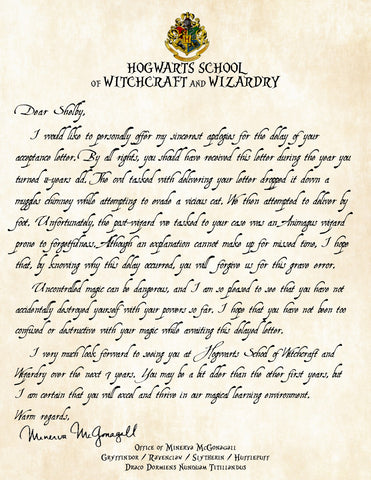 HOGWARTS SCHOOL
OF WITCHCRAFT AND WIZARDRY
Dear Shelby,
I would like to personally offer my sincerest apologies for the delay of your
acceptance letter. By all rights, you should have received this letter during the year you
turned 11-years old. The owl tasked with delivering your letter dropped it down a
muggles chimney while attempting to evade a vicious cat. We then attempted to deliver by
foot. Unfortunately, the post-wizard we tasked to your case was an Animagus wizard
prone to forgetfulness. Although an explanation cannot make up for missed time, I hope
that, by knowing why this delay occurred, you will forgive us for this grave error.
Uncontrolled magic can be dangerous, and I am so pleased to see that you have not
accidentally destroyed yourself with your powers so far. I hope that you have not been too
confused or destructive with your magic while awaiting this delayed letter.
I very much look forward to seeing you at Hogwarts School of Witchcraft and
Wizardry over the next 7 years. You may be a bit older than the other first years, but
I am certain that you will excel and thrive in our magical learning environment.
Warm regards,
Minerva McGonagall
OFFICE OF MINERVA MCGONAGALL
GRYFFINDOR / RAVENCLAW / SLYTHERIN / HUFFLEPUFF
DRACO DORMIENS NUNQUAM TITILLANDUS